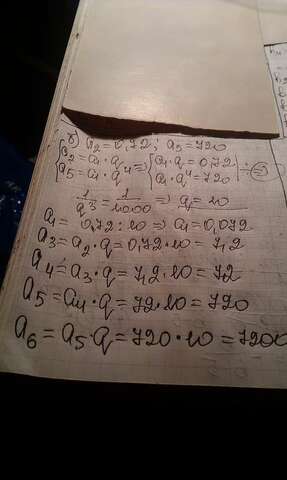 б) a₂=0,72; a₅=720
{a₂=a₁·q => {a₁·q=0,72
{a₅=a₁·q⁴ {a₁·q⁴=720 ÷ =>
1/q³ = 1/1000 => q=10
a₁= 0,72:10 => a₁=0,072
a₃=a₂·q=0,72·10=7,2
a₄=a₃·q=7,2·10=72
a₅=a₄·q=72·10=720
a₆=a₅·q=720·10=7200